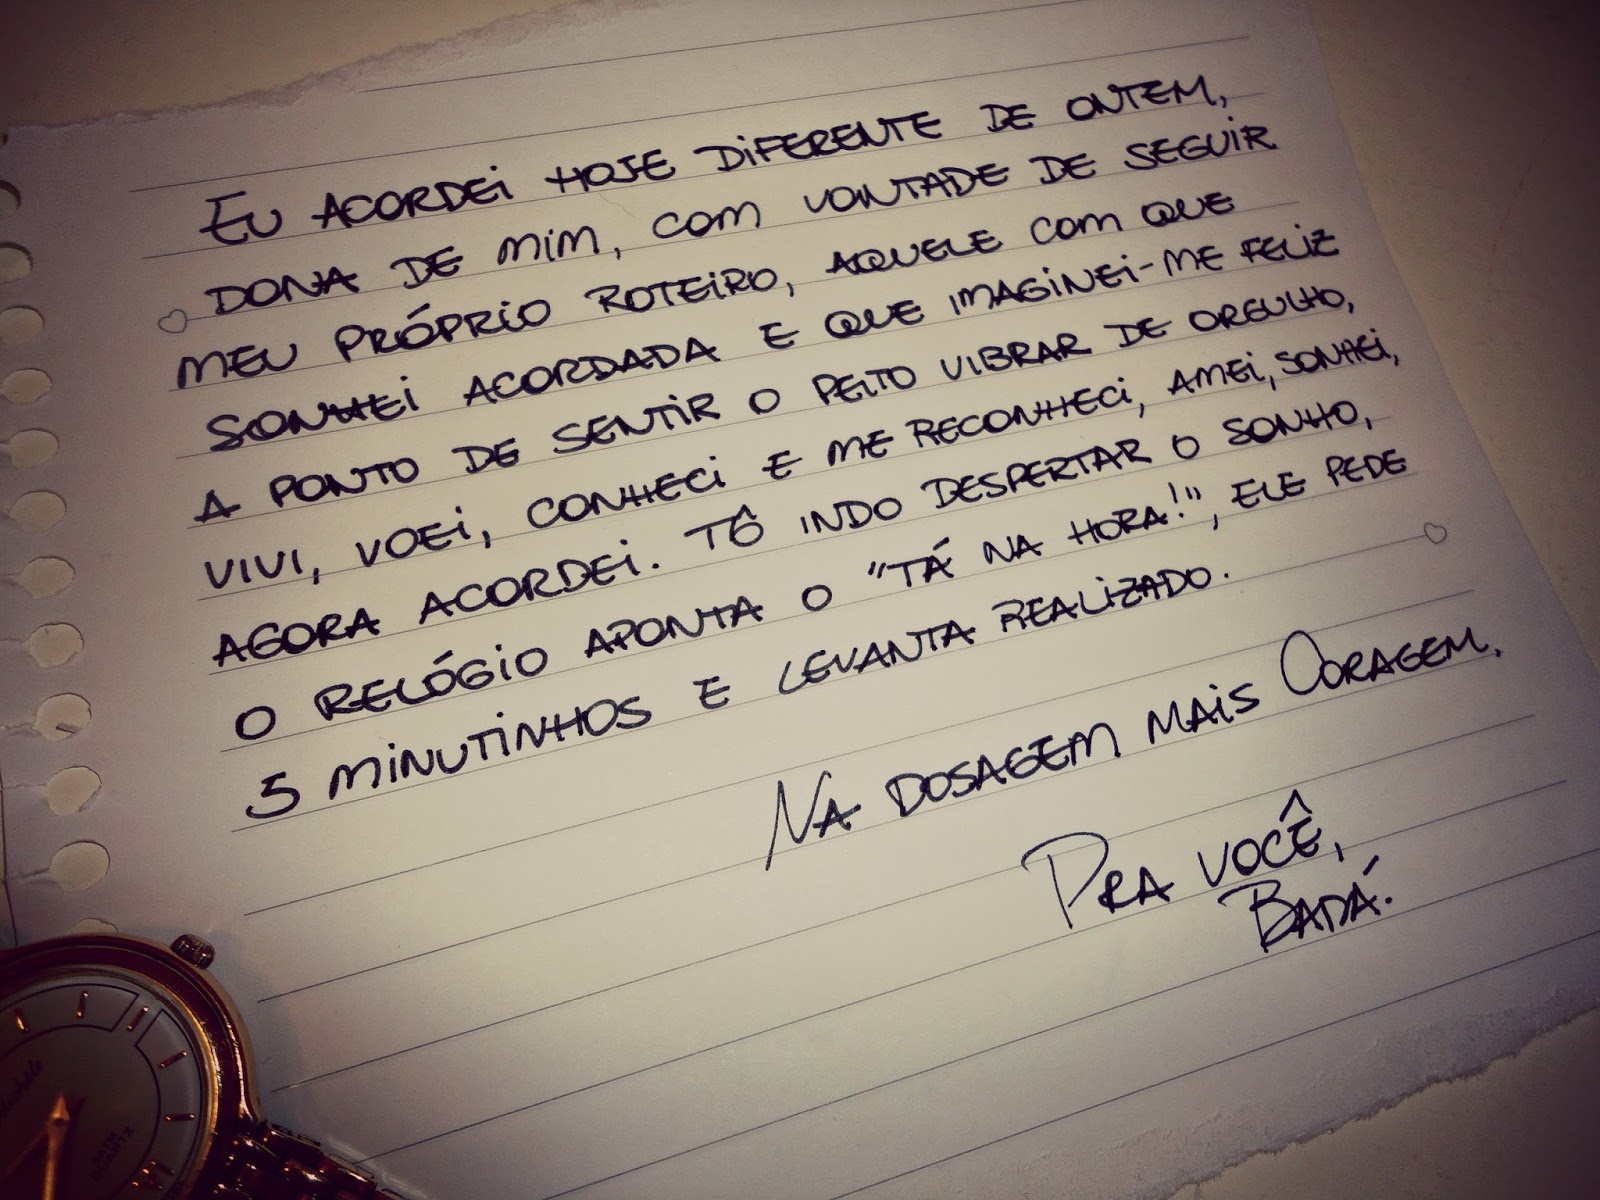 EU ACORDEI HOJE DIFERENTE DE ONTEM,
DONA DE MIM, COM VONTADE DE SEGUIR
MEU PRÓPRIO ROTEIRO, AQUELE COM QUE
SONHEI ACORDADA E QUE IMAGINEI-ME FELIZ
A PONTO DE SENTIR O PEITO VIBRAR DE ORGULHO,
VIVI, VOEI, CONHECI E ME RECONHECI, AMEI, SONHEI,
AGORA ACORDEI. TÔ INDO DESPERTAR O SONHO,
O RELÓGIO APONTA O "TÁ NA HORA!", ELE PEDE
5 MINUTINHOS E LEVANTA REALIZADO.
NA DOSAGEM MAIS CORAGEM,
PRA VOCÊ,
BADÁ.